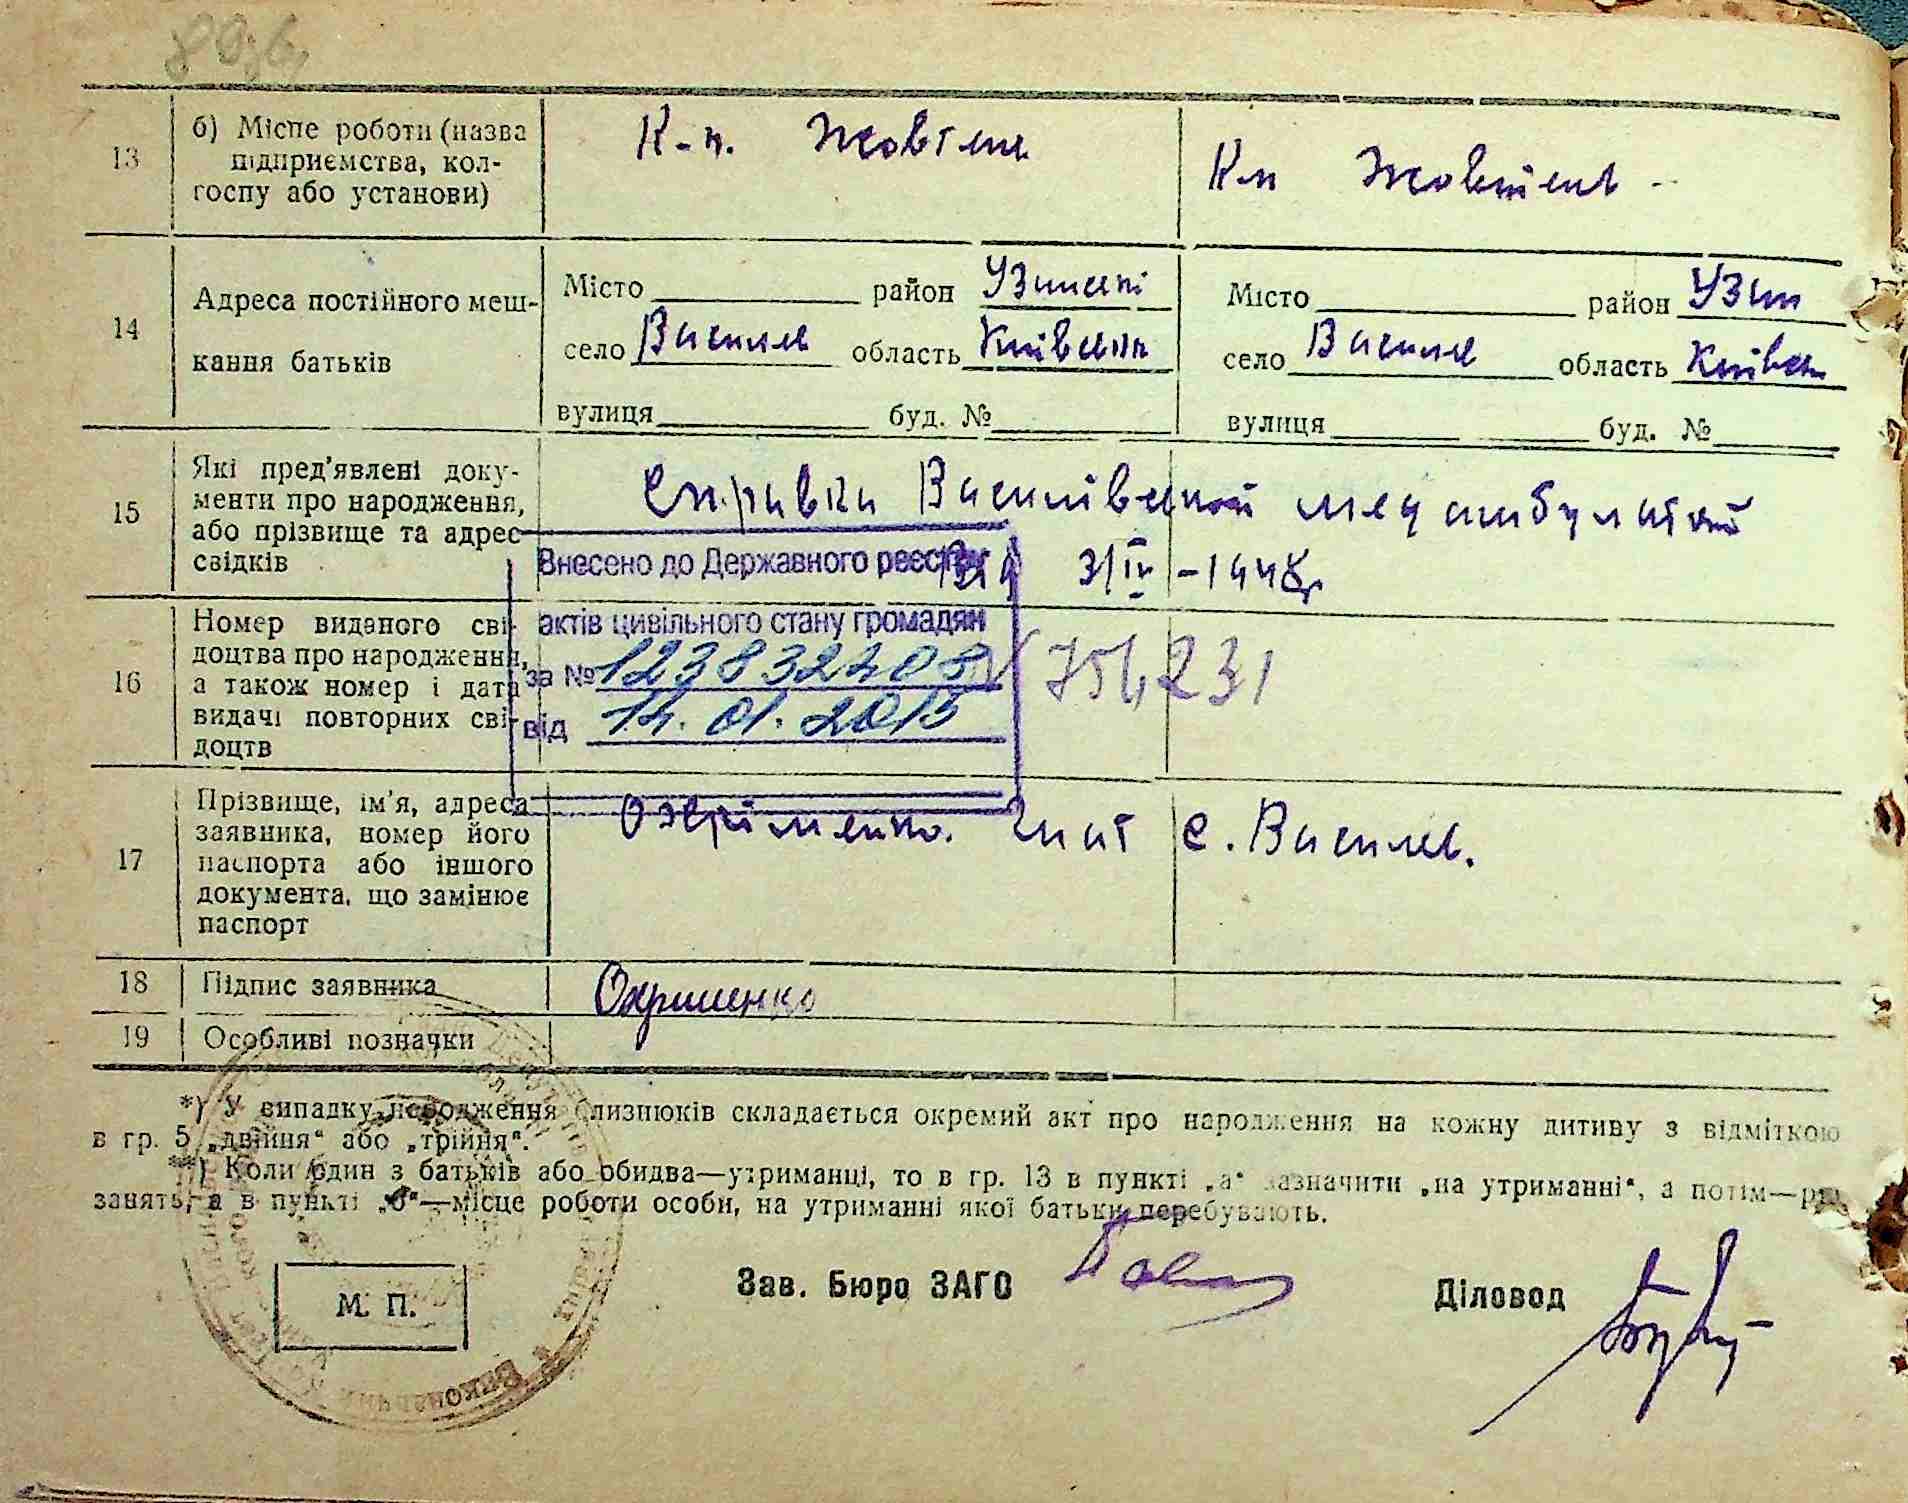 13
б) Місце роботи (назва
підприємства, кол-
госпу або установи)
К-п. Жовтень
Кп Жовтень -
14
Адреса постійного меш-
кання батьків
Місто район Узинськ
село Василев область Київська
вулиця буд. №
Місто район Узин
село Василев область Київськ
вулиця буд. №
15
Які пред'явлені доку-
менти про народження,
або прізвище та адрес
свідків
Справка Василівської мед амбулаторії
від 3/IV - 1948р
Внесено до Державного реєстру
актів цивільного стану громадян
за № 123832408
від 14.01.2015
16
Номер виданого сві-
доцтва про народження,
а також номер і дата
видачі повторних сві-
доцтв
754231
17
Прізвище, ім'я, адреса
заявника, номер його
паспорта або іншого
документа, що замінює
паспорт
Охріменко. Гнат с. Василев.
18
Підпис заявника
Охрименко
19
Особливі позначки
*) У випадку народження близнюків складається окремий акт про народження на кожну дитину з відміткою
в гр. 5 „двійня“ або „трійня“.
**) Коли один з батьків або обидва—утриманці, то в гр. 13 в пункті „а“ зазначити „на утриманні“, а потім—рід
занять, а в пункті „б“—місце роботи особи, на утриманні якої батьки перебувають.
М. П.
Зав. Бюро ЗАГС
Діловод